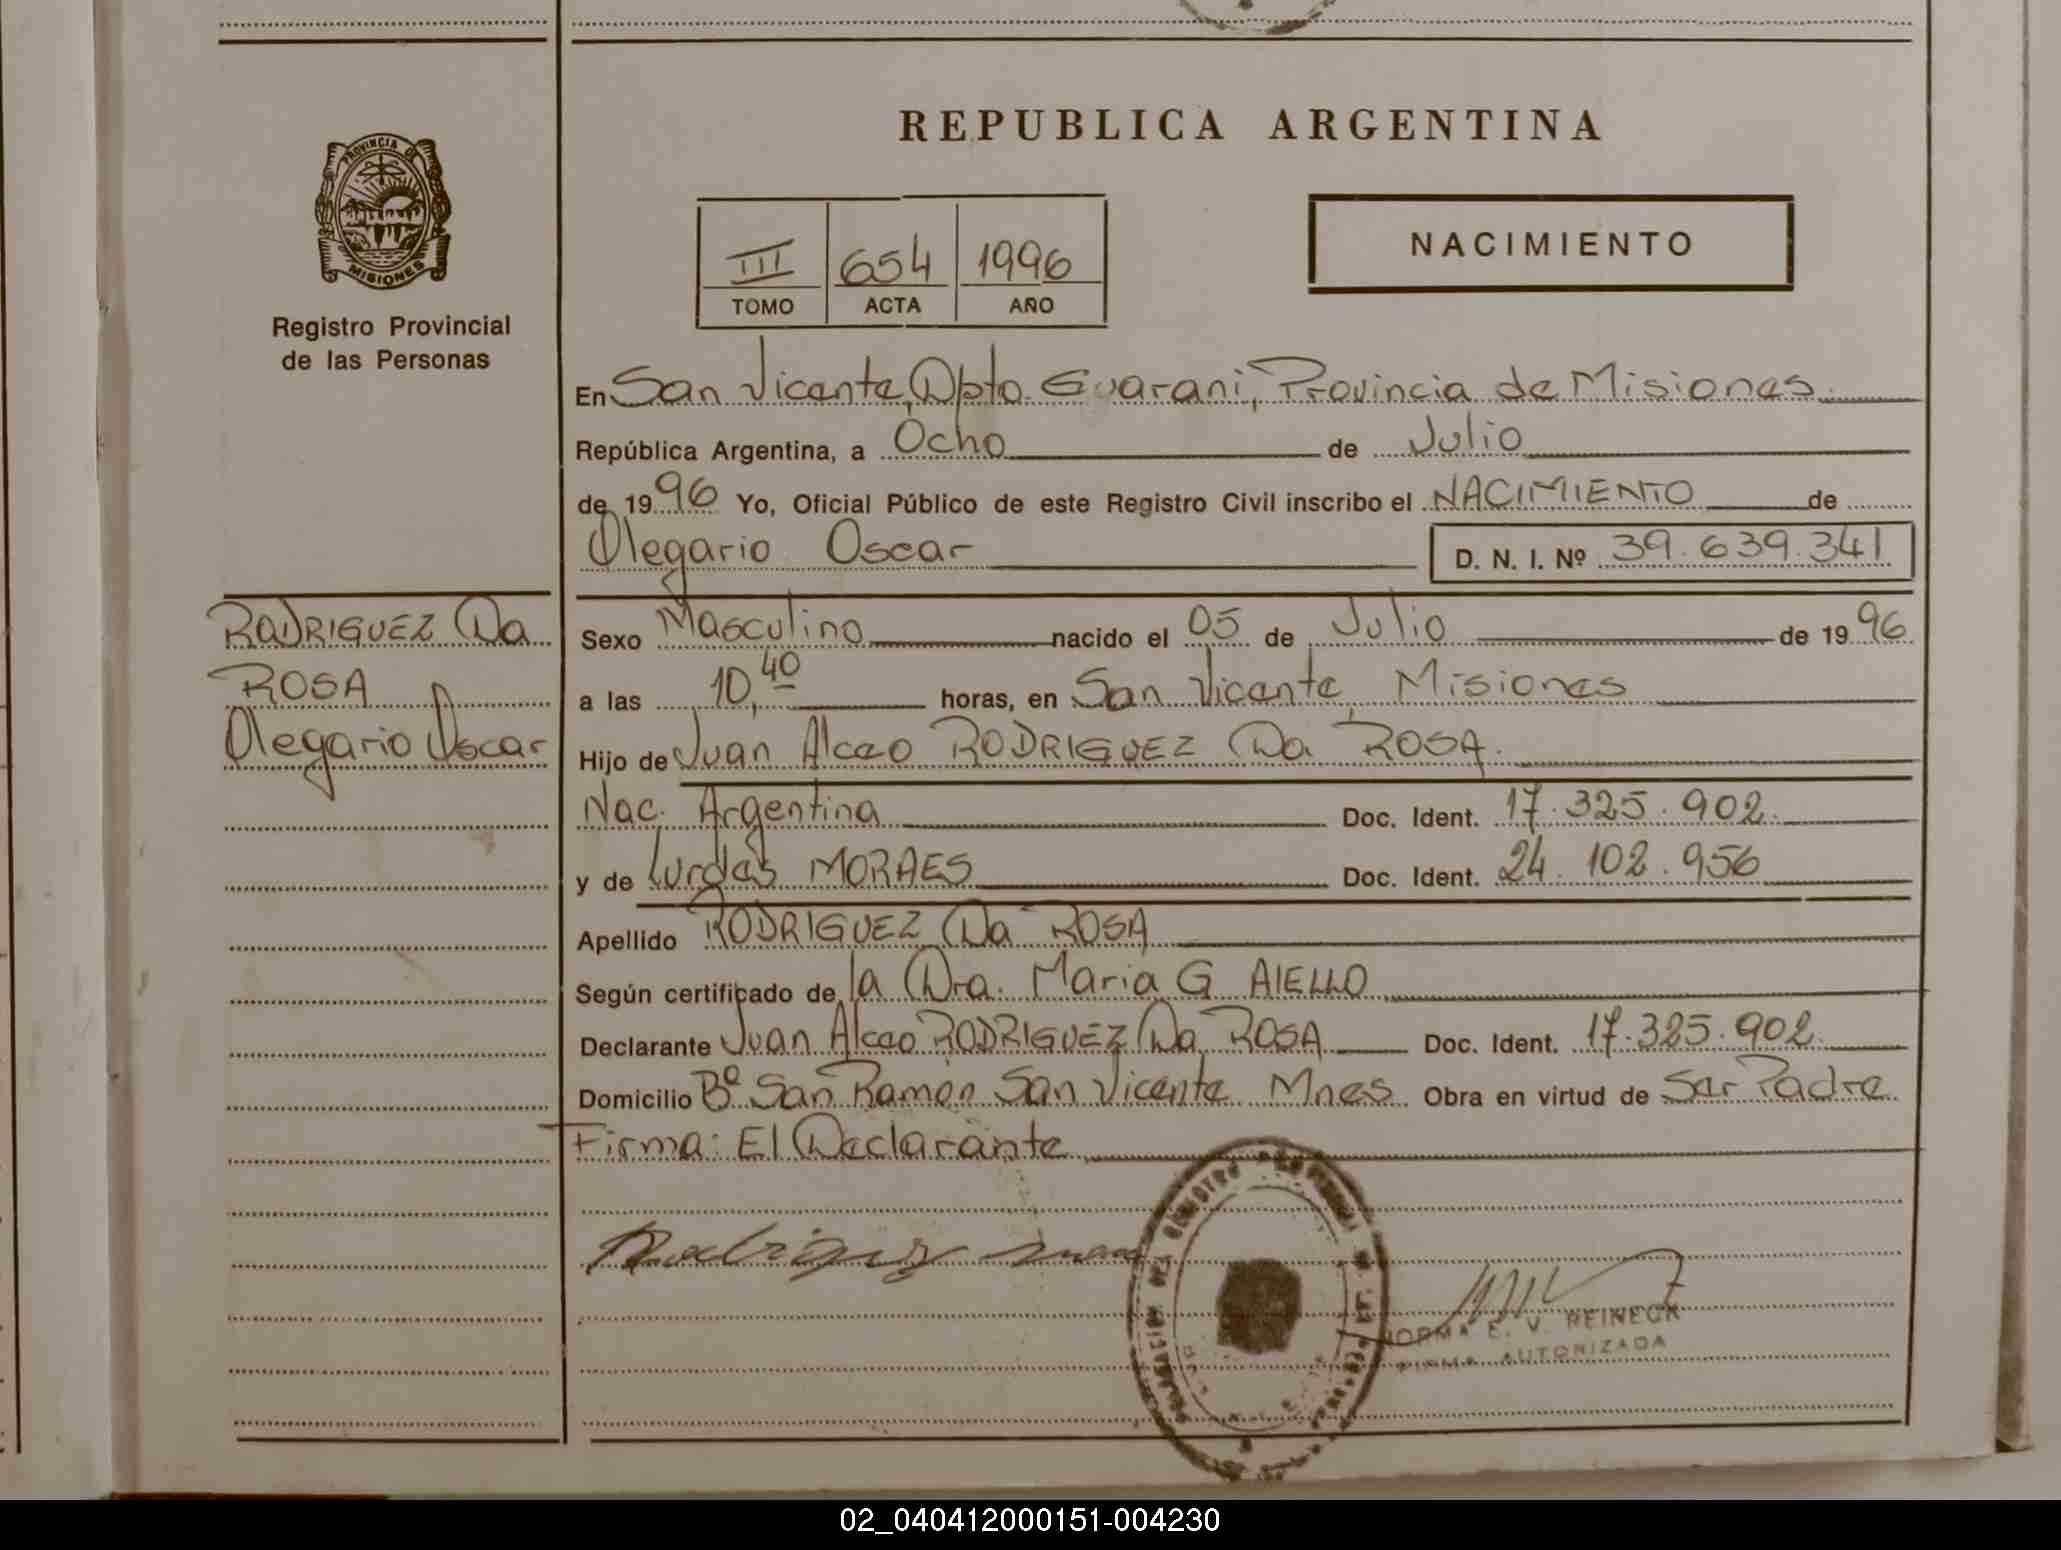 REPUBLICA ARGENTINA
PROVINCIA DE
MISIONES
Registro Provincial
de las Personas
III 654 1996
TOMO ACTA AÑO
NACIMIENTO
En San Vicente, Dpto. Guarani, Provincia de Misiones
República Argentina, a Ocho de Julio
de 1996 Yo, Oficial Público de este Registro Civil inscribo el NACIMIENTO de
Olegario Oscar D. N. I. Nº 39.639.341
RODRIGUEZ Da
ROSA
Olegario Oscar
Sexo Masculino nacido el 05 de Julio de 1996
a las 10,40 horas, en San Vicente, Misiones
Hijo de Juan Alceo RODRIGUEZ Da ROSA.
Nac. Argentina Doc. Ident. 17.325.902.
y de Lurdes MORAES Doc. Ident. 24.102.956
Apellido RODRIGUEZ Da ROSA
Según certificado de la Dra. Maria G AIELLO
Declarante Juan Alceo RODRIGUEZ Da ROSA Doc. Ident. 17.325.902.
Domicilio Bº San Ramón San Vicente Mnes Obra en virtud de Ser Padre
Firma: El Declarante
Rodriguez Juan
NORMA E. V. REINECK
FIRMA AUTORIZADA
02_040412000151-004230